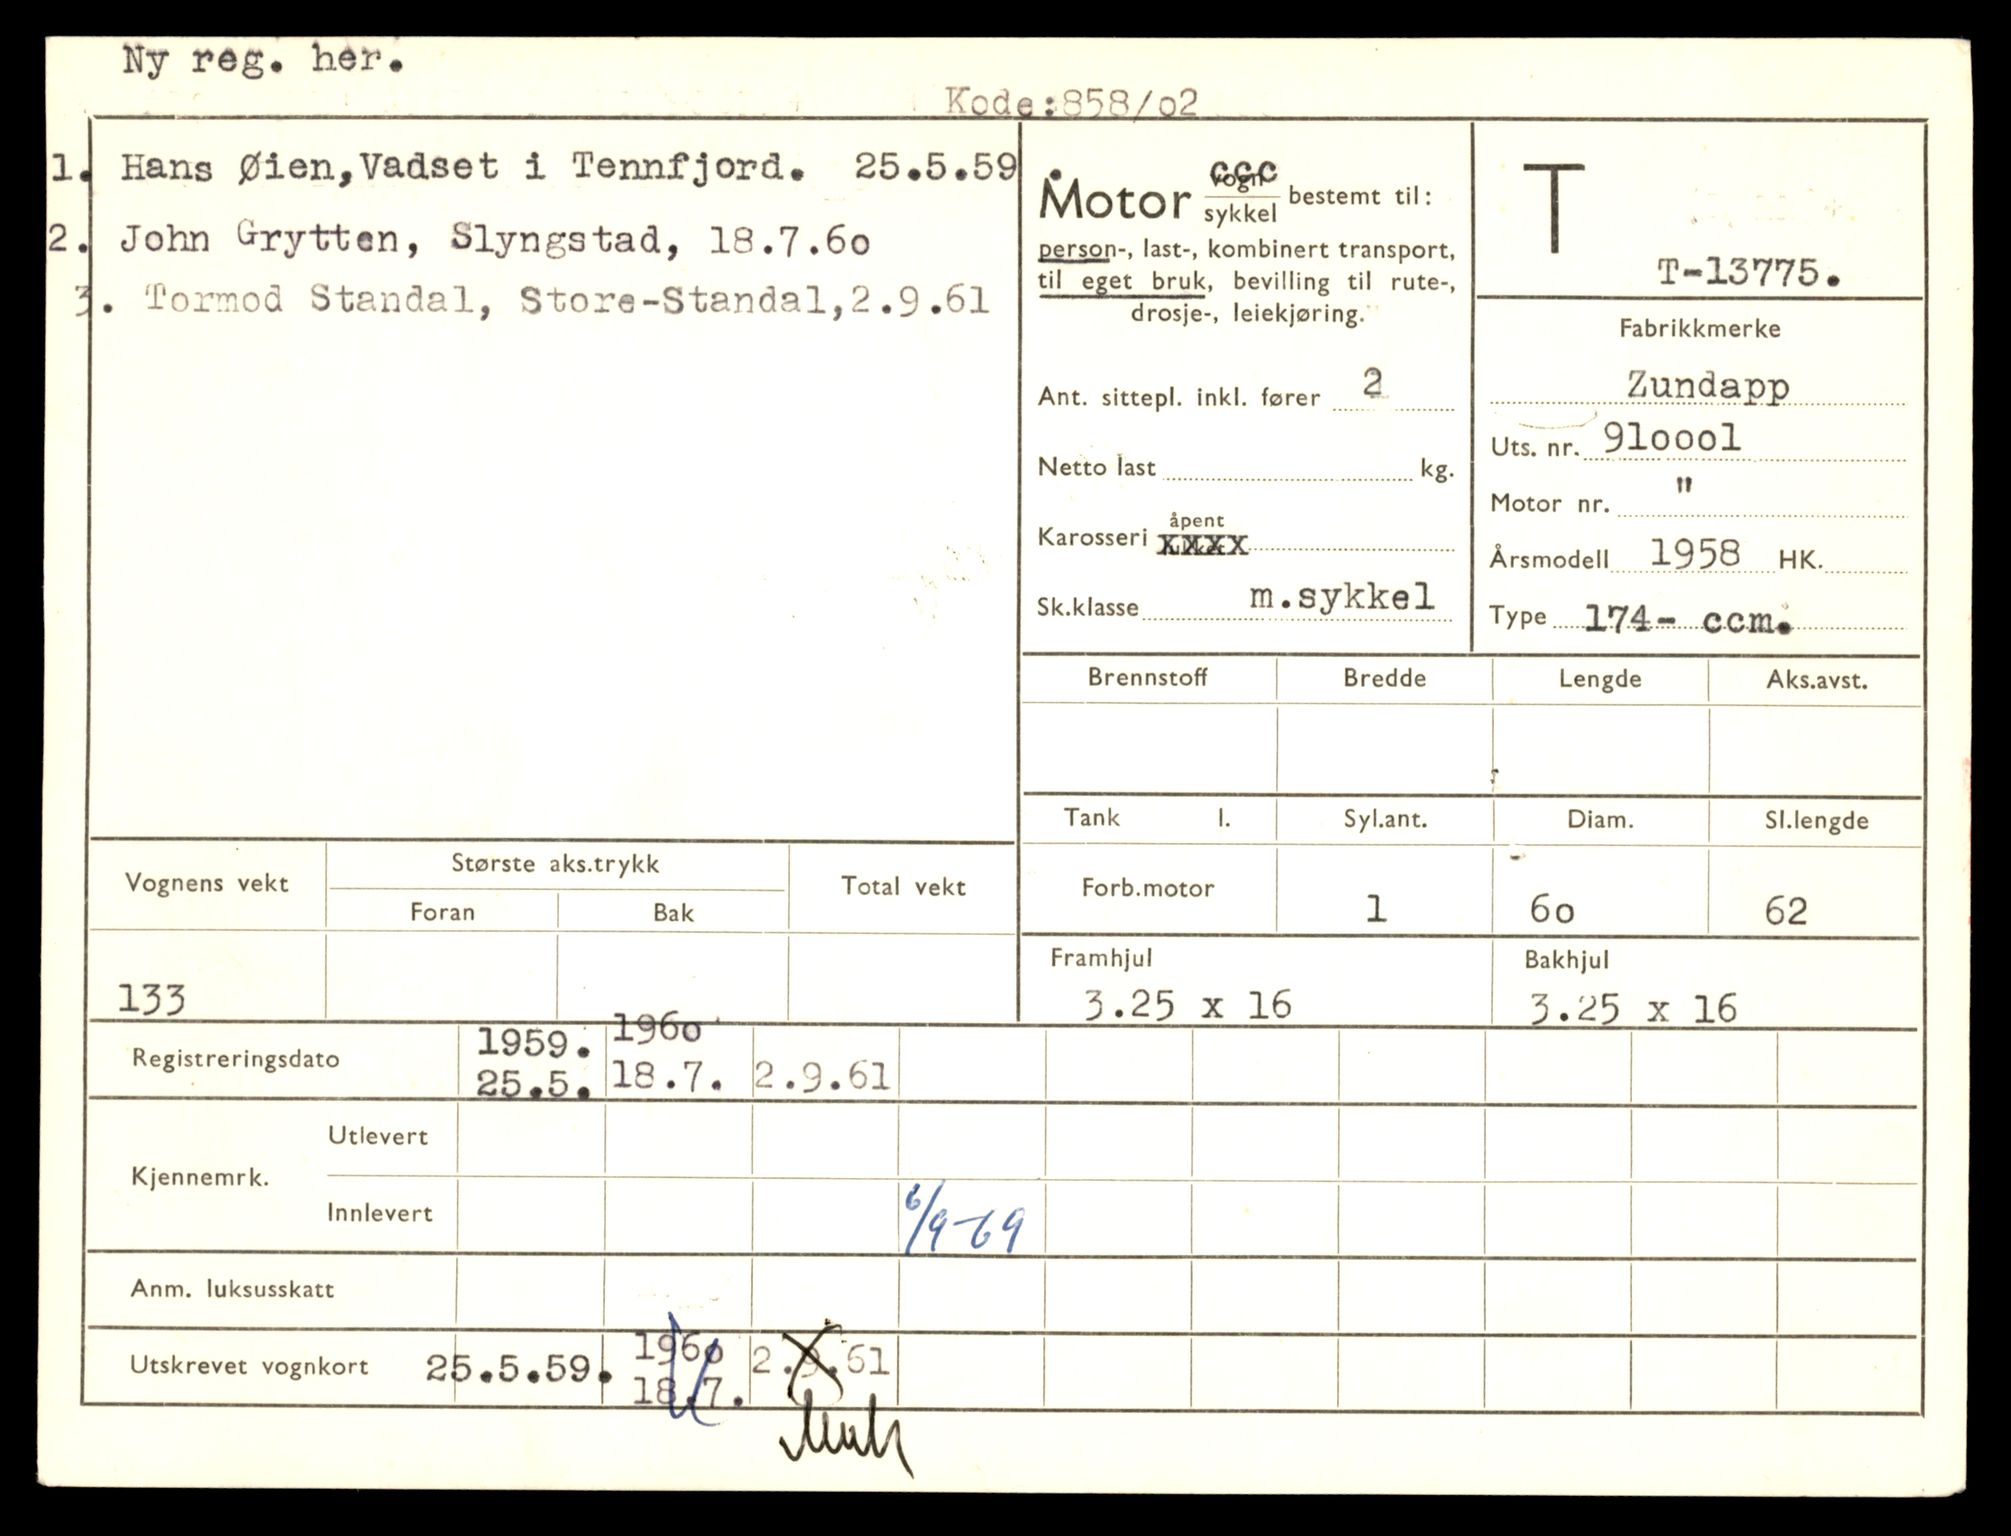 Ny reg. her.
Kode:858/o2
1. Hans Øien,Vadset i Tennfjord. 25.5.59
2. John Grytten, Slyngstad, 18.7.6o
3. Tormod Standal, Store-Standal,2.9.61
Motor vogn/sykkel bestemt til:
person-, last-, kombinert transport,
til eget bruk, bevilling til rute-,
drosje-, leiekjøring.
Ant. sittepl. inkl. fører 2
Netto last kg.
Karosseri åpent
Sk.klasse m.sykkel
T
T-13775.
Fabrikkmerke
Zundapp
Uts. nr. 91ooo1
Motor nr. "
Årsmodell 1958 HK.
Type 174- ccm.
Brennstoff Bredde Lengde Aks.avst.
Tank l. Syl.ant. Diam. Sl.lengde
Forb.motor 1 6o 62
Framhjul Bakhjul
3.25 x 16 3.25 x 16
Vognens vekt Største aks.trykk Total vekt
Foran Bak
133
Registreringsdato 1959. 25.5. 196o 18.7. 2.9.61
Kjennemrk.
Utlevert
Innlevert 6/9-69
Anm. luksusskatt
Utskrevet vognkort 25.5.59. 196o 18.7. 2.9.61